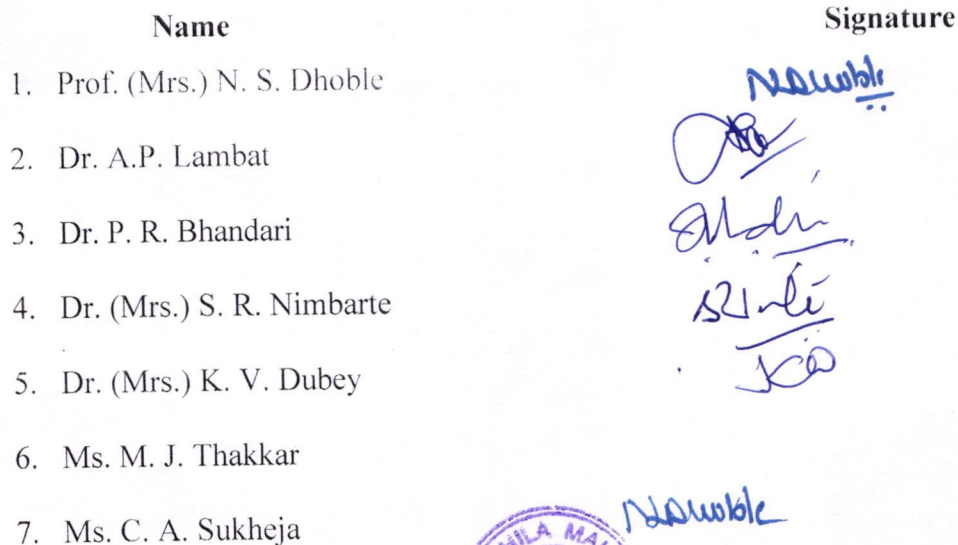 Name Signature
1. Prof. (Mrs.) N. S. Dhoble NSDhoble
2. Dr. A.P. Lambat
3. Dr. P. R. Bhandari
4. Dr. (Mrs.) S. R. Nimbarte
5. Dr. (Mrs.) K. V. Dubey
6. Ms. M. J. Thakkar
7. Ms. C. A. Sukheja NSDhoble